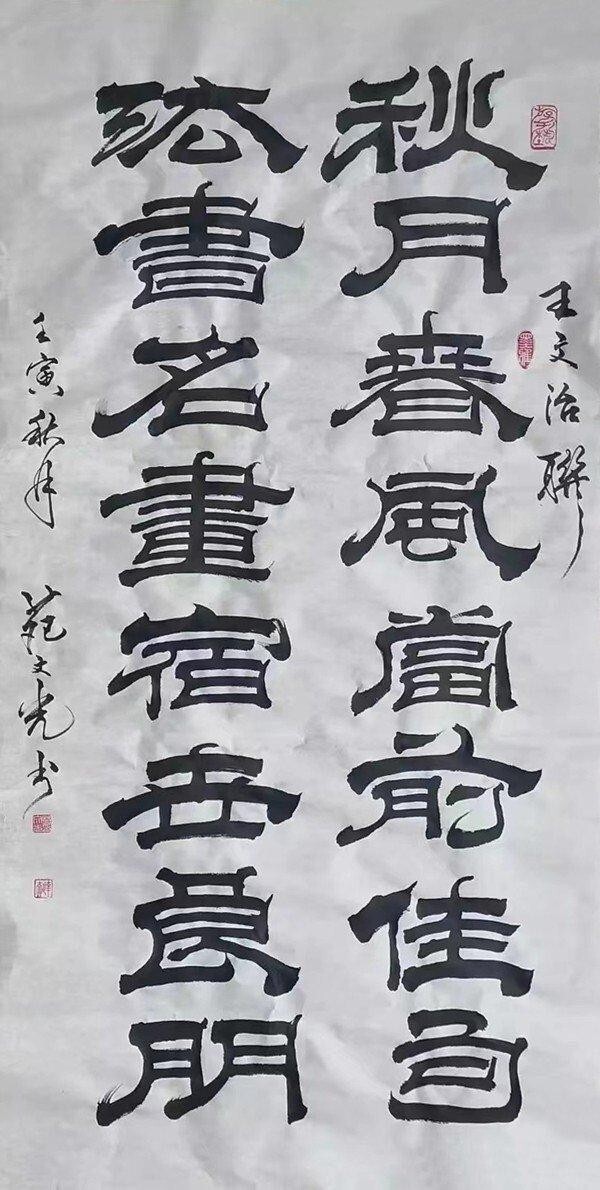 王文治聯
秋月春風當前佳句
法書名畫宿世良朋
壬寅秋月 范文光书